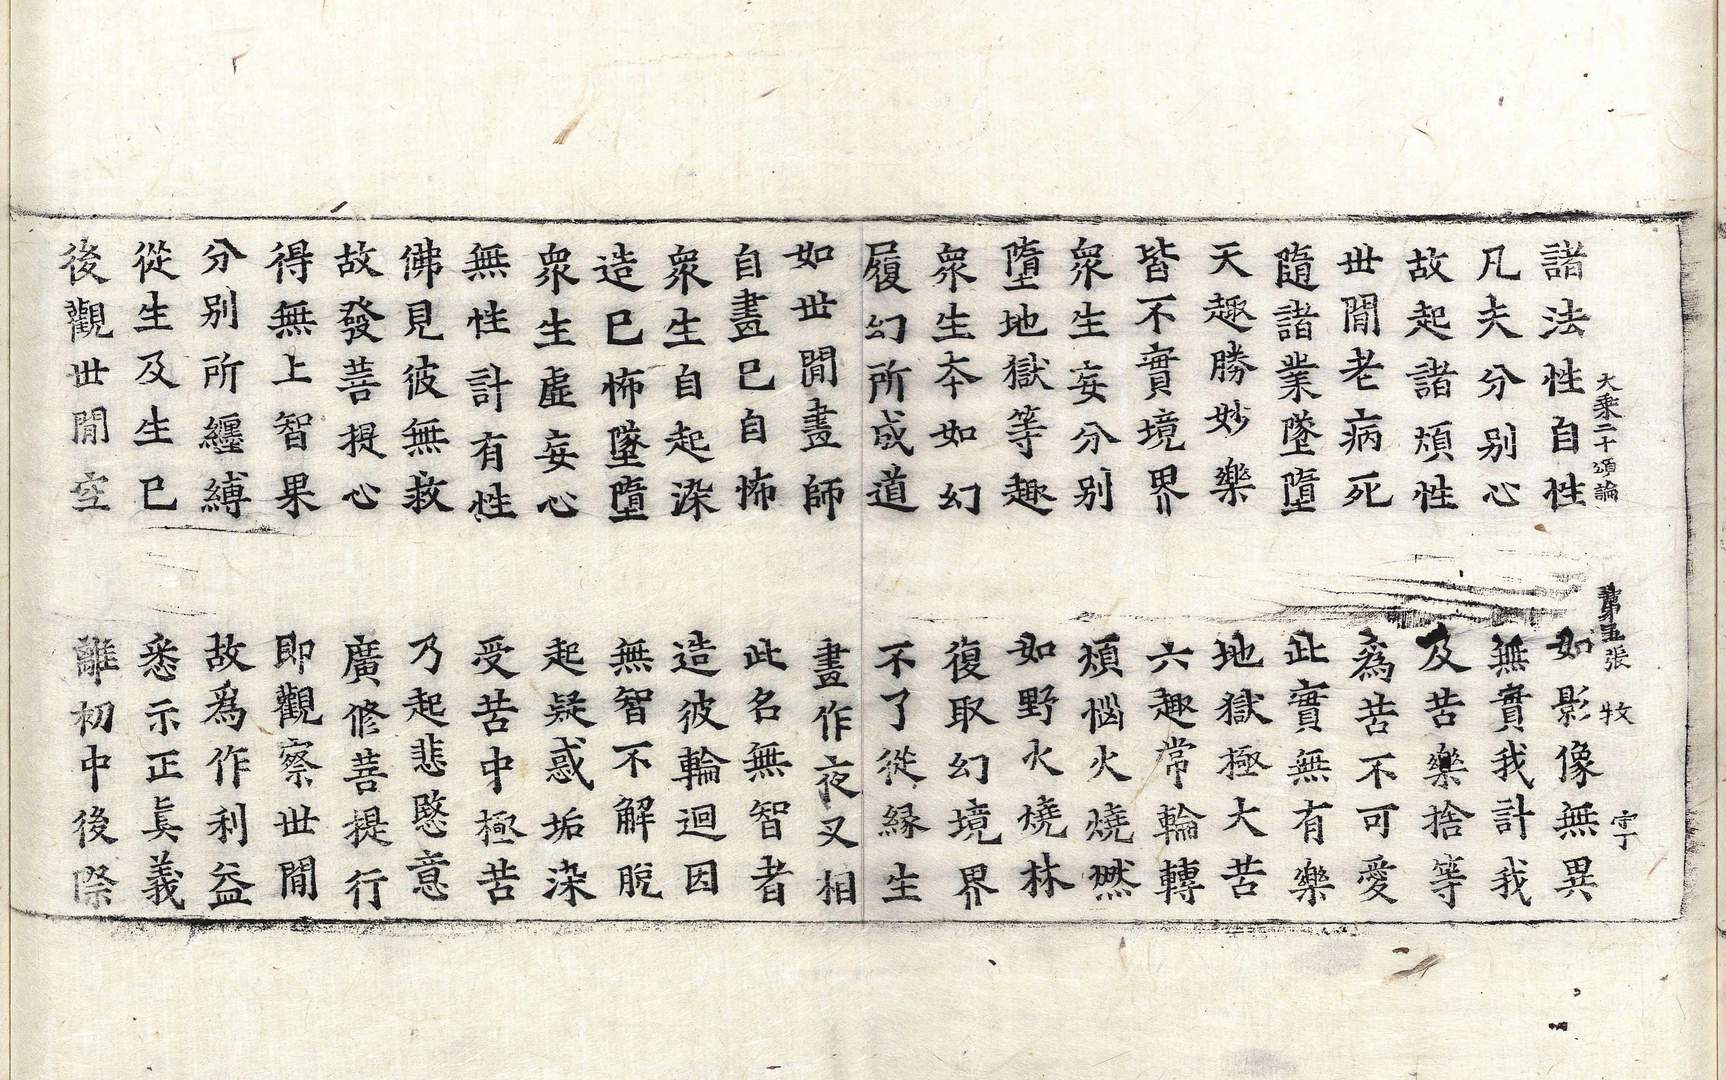 大乘二十頌論 第五張 牧
諸法性自性 如影像無異
凡夫分别心 無實我計我
故起諸煩性 及苦樂捨等
世間老病死 為苦不可愛
隨諸業墜墮 此實無有樂
天趣勝妙樂 地獄極大苦
皆不實境界 六趣常輪轉
衆生妄分别 煩惱火燒燃
墮地獄等趣 如野火燒林
衆生本如幻 復取幻境界
履幻所成道 不了從緣生
如世間畫師 畫作夜叉相
自畫已自怖 此名無智者
衆生自起染 造彼輪迴因
造已怖墜墮 無智不解脫
衆生虛妄心 起疑惑垢染
無性計有性 受苦中極苦
佛見彼無救 乃起悲愍意
故發菩提心 廣修菩提行
得無上智果 即觀察世間
分别所纏縛 故爲作利益
從生及生已 悉示正眞義
後觀世間空 離初中後際